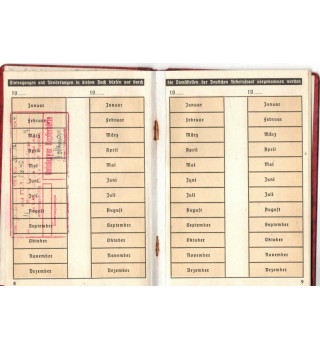 Eintragungen und Änderungen in diesem Buch dürfen nur durch
die Dienststellen der Deutschen Arbeitsfront vorgenommen werden
19
19
Januar
Januar
Februar
Februar
März
März
April
April
Mai
Mai
Juni
Juni
Juli
Juli
August
August
September
September
Oktober
Oktober
November
November
Dezember
Dezember
8
19
19
Januar
Januar
Februar
Februar
März
März
April
April
Mai
Mai
Juni
Juni
Juli
Juli
August
August
September
September
Oktober
Oktober
November
November
Dezember
Dezember
9